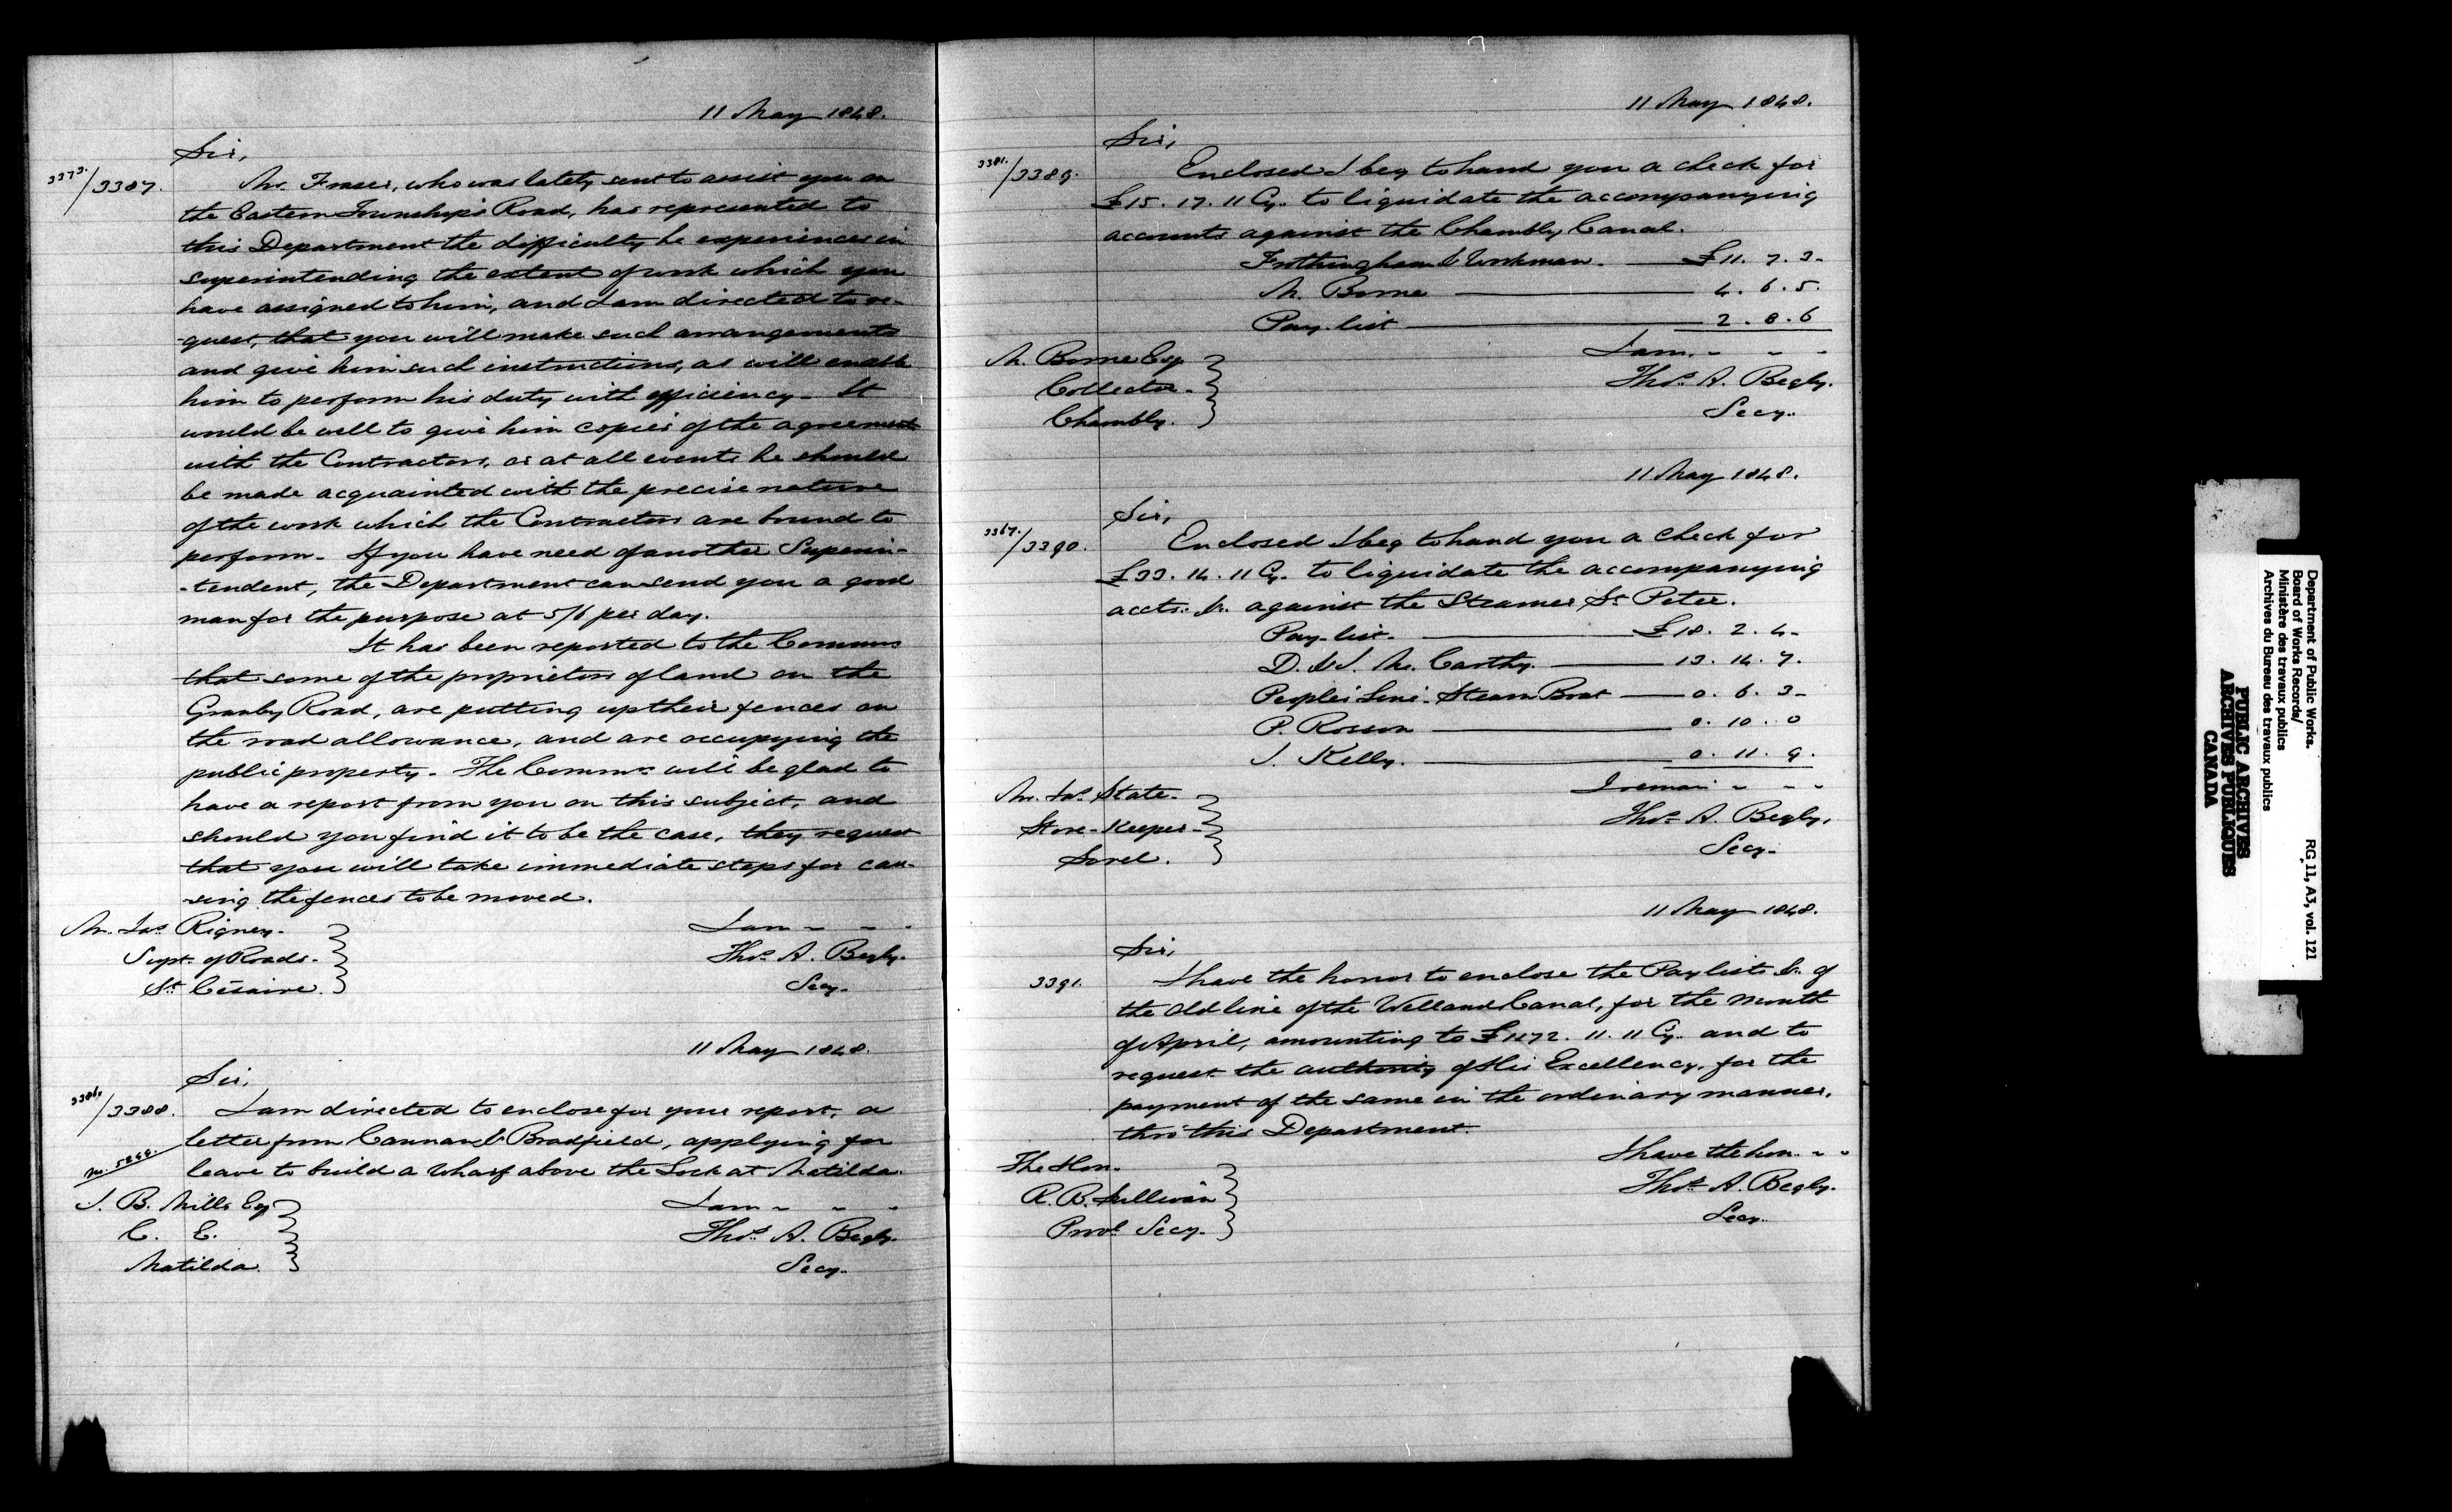 11 May 1848.
Sir,
3373./3387. Mr. Fraser, who was lately sent to assist you on
the Eastern Townships Road, has represented to
this Department the difficulty he experiences in
superintending the extent of work which you
have assigned to him, and I am directed to re-
-quest, that you will make such arrangements
and give him such instructions, as will enable
him to perform his duty with efficiency. It
would be well to give him copies of the agreement
with the Contractors, or at all events he should
be made acquainted with the precise nature
of the work which the Contractors are bound to
perform. If you have need of another Superin-
-tendent, the Department can send you a good
man for the purpose at 5/6 per day.
It has been reported to the Commrs
that some of the proprietors of land on the
Granby Road, are putting up their fences on
the road allowance, and are occupying the
public property. The Commrs will be glad to
have a report from you on this subject, and
should you find it to be the case, they request
that you will take immediate steps for cau-
-sing the fences to be moved.
Mr. Jas Rigney. I am - - -
Supt. of Roads. Thos. A. Begly.
St. Césaire. Secy.
11 May 1848.
Sir,
/3388. I am directed to enclose for your report, a
letter from Cannan & Bradfield, applying for
leave to build a Wharf above the Lock at Matilda.
J. B. Mills Esq I am - - -
C. E. Thos. A. Begly.
Matilda. Secy.
11 May 1848.
Sir,
3381./3389. Enclosed I beg to hand you a check for
£15. 17. 11 Cy. to liquidate the accompanying
accounts against the Chambly Canal.
Frothingham & Workman. £11. 7. 3.
M. Borne 4. 6. 5.
Pay-list 2. 8. 6
M. Borne Esq I am. - - -
Collector. Thos. A. Begly.
Chambly. Secy.
11 May 1848.
Sir,
3367./3390. Enclosed I beg to hand you a check for
£33. 14. 11 Cy. to liquidate the accompanying
accts. &c. against the Steamer St. Peter.
Pay-list. £18. 2. 4.
D. & J. Mc. Carthy. 13. 14. 7.
People's Line Steam Boat 0. 6. 3.
P. 0. 10. 0
J. Kelly. 0. 11. 9.
Mr. Jas. State. I remain - - -
Store-Keeper. Thos. A. Begly.
Sorel. Secy.
11 May 1848.
Sir,
3391. I have the honor to enclose the Pay lists &c. of
the old line of the Welland Canal, for the month
of April, amounting to £1172. 11. 11 Cy. and to
request the authority of His Excellency, for the
payment of the same in the ordinary manner,
thro' this Department.
The Hon. I have the hon. - -
R. B. Sullivan Thos. A. Begly.
Provl. Secy. Secy.
Department of Public Works.
Board of Works Records/
Ministère des travaux publics
Archives du Bureau des travaux publics
RG 11, A3, vol. 121
PUBLIC ARCHIVES
ARCHIVES PUBLIQUES
CANADA